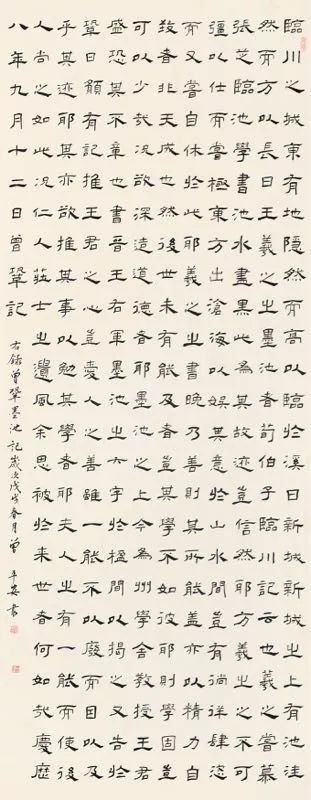 臨川之城東有地隱然而高以臨於溪曰新城新城之上有池洼
然而方以長曰王羲之之墨池者荀伯子臨川記云也羲之嘗慕
張芝臨池學書池水盡黑此為其故迹豈信然耶方羲之之不可
彊以仕而嘗極東方出滄海以娛其意於山水間豈有徜徉肆恣
而又嘗自休於此耶羲之之書晚乃善則其所能蓋亦以精力自
致者非天成也然後世未有能及者豈其學不如彼耶則學固豈
可以少哉況欲深造道德者耶墨池之上今為州學舍教授王君
盛恐其不章也書晉王右軍墨池之六字於楹間以揭之又告於
鞏曰願有記推王君之心豈愛人之善雖一能不以廢而因以及
乎其迹耶其亦欲推其事以勉其學者耶夫人之有一能而使後
人尚之如此況仁人莊士之遺風余思被於來世者何如哉慶歷
八年九月十二日曾鞏記
右錄曾鞏墨池記歲次戊戌春月曾平安書